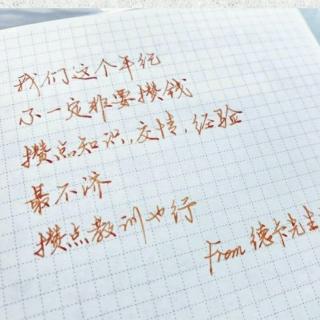 我们这个年纪
不一定非要攒钱
攒点知识,交情,经验
最不济
攒点教训也行
From 德卡先生